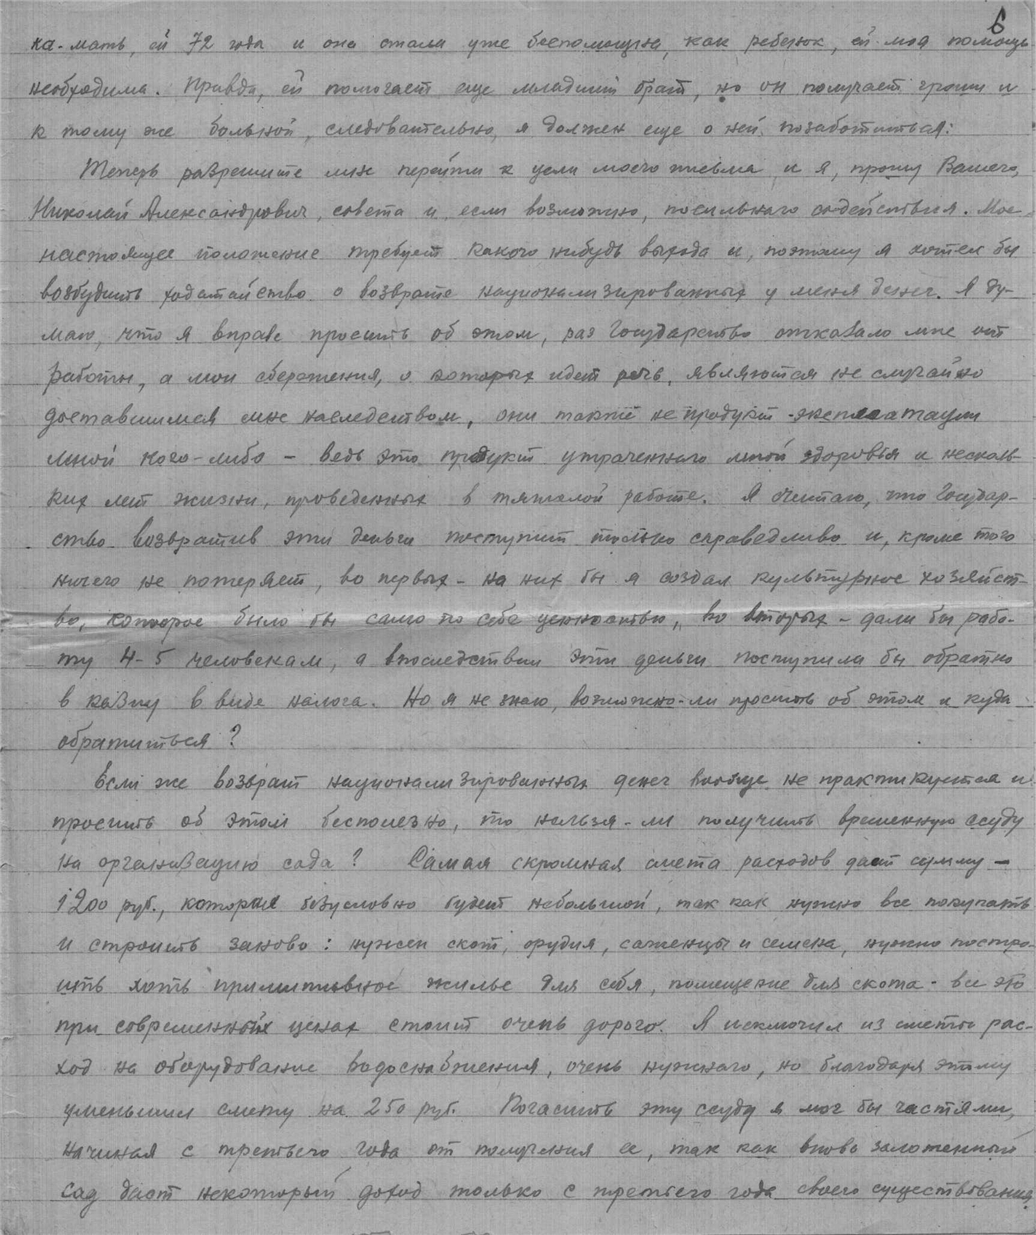 6
ка-мать, ей 72 года и она стала уже беспомощна, как ребенок, ей моя помощь
необходима. Правда, ей помогает еще младший брат, но он получает гроши и
к тому же больной, следовательно, я должен еще о ней позаботиться.
Теперь разрешите мне перейти к цели моего письма и я, прошу Вашего,
Николай Александрович, совета и, если возможно, посильного содействия. Мое
настоящее положение требует какого нибудь выхода и, поэтому я хотел бы
возбудить ходатайство о возврате национализированных у меня денег. Я ду-
маю, что я вправе просить об этом, раз Государство отказало мне от
работы, а мои сбережения, о которых идет речь, являются не случайно
доставшимся мне наследством, они также не продукт эксплоатации
мной кого-либо - ведь это продукт утраченного мной здоровья и несколь-
ких лет жизни, проведенных в тяжелой работе. Я считаю, что Государ-
ство возвратив эти деньги поступит только справедливо и, кроме того
ничего не потеряет, во первых - на них бы я создал культурное хозяйст-
во, которое было бы само по себе ценностью, во вторых - дали бы рабо-
ту 4-5 человекам, а впоследствии эти деньги поступили бы обратно
в казну в виде налога. Но я не знаю, возможно-ли просить об этом и куда
обратиться?
Если же возврат национализированных денег вообще не практикуется и
просить об этом бесполезно, то нельзя-ли получить временную ссуду
на организацию сада? Самая скромная смета расходов дает сумму -
1200 руб., которая безусловно будет небольшой, так как нужно все покупать
и строить заново: нужен скот, орудия, саженцы и семена, нужно постро-
ить хоть примитивное жилье для себя, помещение для скота - все это
при современных ценах стоит очень дорого. Я исключил из сметы рас-
ход на оборудование водоснабжения, очень нужного, но благодаря этому
уменьшил смету на 250 руб. Погасить эту ссуду я мог бы частями,
начиная с третьего года от получения ее, так как вновь заложенный
сад дает некоторый доход только с третьего года своего существования,